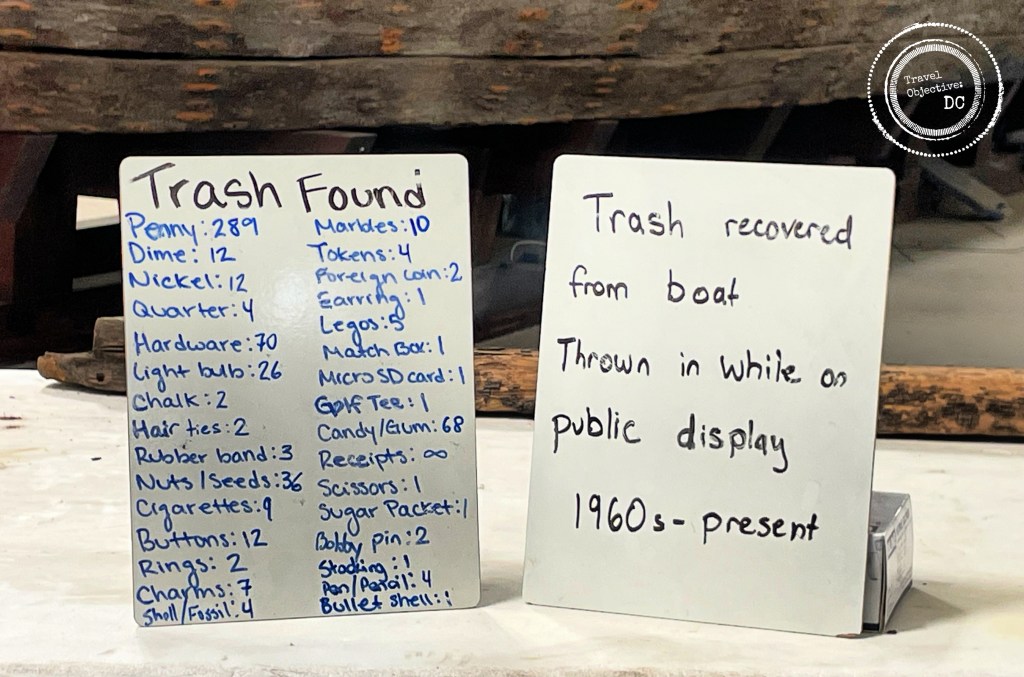 Travel
Objective:
DC
Trash Found
Penny: 289
Dime: 12
Nickel: 12
Quarter: 4
Hardware: 70
Light bulb: 26
Chalk: 2
Hair ties: 2
Rubber band: 3
Nuts/Seeds: 36
Cigarettes: 9
Buttons: 12
Rings: 2
Charms: 7
Shell/Fossil: 4
Marbles: 10
Tokens: 4
Foreign coin: 2
Earring: 1
Legos: 5
Match Box: 1
Micro SD card: 1
Golf Tee: 1
Candy/Gum: 68
Receipts: ∞
Scissors: 1
Sugar Packet: 1
Bobby pin: 2
Stocking: 1
Pen/Pencil: 4
Bullet shell: 1
Trash recovered
from boat
Thrown in while on
public display
1960s - present